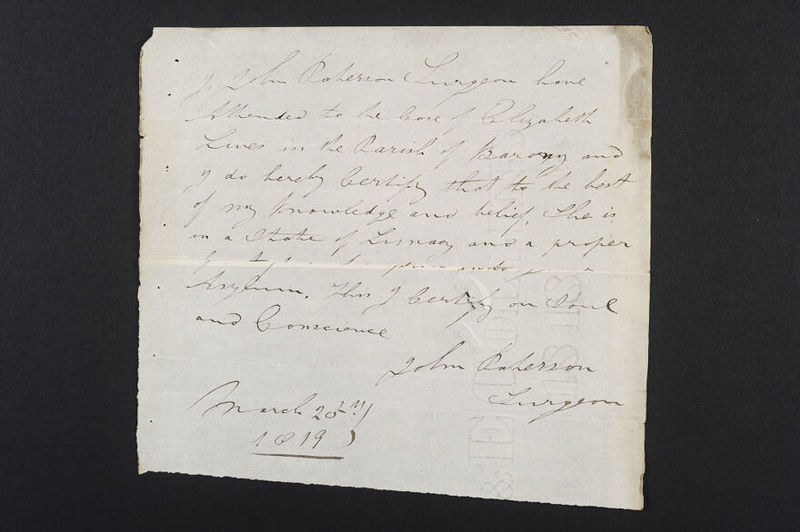 I, John Paterson Surgeon have
Attended to the Case of Elizabeth
Lives in the Parish of Barony and
I do hereby Certify that to the best
of my knowledge and belief, She is
in a State of Lunacy and a proper
Asylum. This I Certify on Soul
and Conscience
John Paterson
Surgeon
March 25th
1819
1818